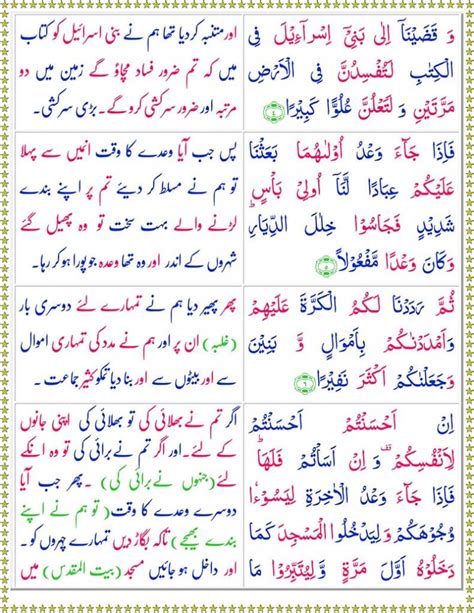 وَ قَضَيْنَاۤ اِلٰى بَنِىْۤ اِسْرَآءِيْلَ فِى
الْكِتٰبِ لَتُفْسِدُنَّ فِى الْاَرْضِ
مَرَّتَيْنِ وَ لَتَعْلُنَّ عُلُوًّا كَبِيْرًا ﴿۴﴾
اور متنبہ کردیا تھا ہم نے بنی اسرائیل کو کتاب
میں کہ تم ضرور فساد مچاؤ گے زمین میں دو
مرتبہ اور ضرور سرکشی کروگے۔ بڑی سرکشی۔
فَاِذَا جَآءَ وَعْدُ اُوْلٰىهُمَا بَعَثْنَا
عَلَيْكُمْ عِبَادًا لَّنَاۤ اُولِىْ بَاْسٍ
شَدِيْدٍ فَجَاسُوْا خِلٰلَ الدِّيَارِؕ
وَكَانَ وَعْدًا مَّفْعُوْلًا ﴿۵﴾
پس جب آیا وعدے کا وقت انمیں سے پہلا
تو ہم نے مسلط کر دیئے تم پر اپنے بندے
لڑنے والے بہت سخت تو وہ پھیل گئے
شہروں کے اندر اور وہ تھا وعدہ جو پورا ہو کر رہا۔
ثُمَّ رَدَدْنَا لَكُمُ الْكَرَّةَ عَلَيْهِمْ
وَاَمْدَدْنٰكُمْ بِاَمْوَالٍ وَّ بَنِيْنَ
وَجَعَلْنٰكُمْ اَكْثَرَ نَفِيْرًا ﴿۶﴾
پھر پھیر دیا ہم نے تمہارے لئے دوسری بار
(غلبہ) ان پر اور ہم نے مدد کی تمہاری اموال
سے اور بیٹوں سے اور بنا دیا تمکو کثیر جماعت ۔
اِنْ اَحْسَنْتُمْ اَحْسَنْتُمْ
لِاَنْفُسِكُمْ وَ اِنْ اَسَاْتُمْ فَلَهَاؕ
فَاِذَا جَآءَ وَعْدُ الْاٰخِرَةِ لِيَسُوْٓءٗا
وُجُوْهَكُمْ وَلِيَدْخُلُوا الْمَسْجِدَ كَمَا
دَخَلُوْهُ اَوَّلَ مَرَّةٍ وَّ لِيُتَبِّرُوْا مَا
اگر تم نے بھلائی کی تو بھلائی کی اپنی جانوں
کے لئے۔ اور اگر تم نے برائی کی تو وہ انکے
لئے (جنہوں نے برائی کی) ۔ پھر جب آیا
دوسرے وعدے کا وقت (تو ہم نے اپنے
بندے بھیجے) تاکہ بگاڑ دیں تمہارے چہروں کو۔
اور داخل ہو جائیں مسجد (بیت المقدس) میں